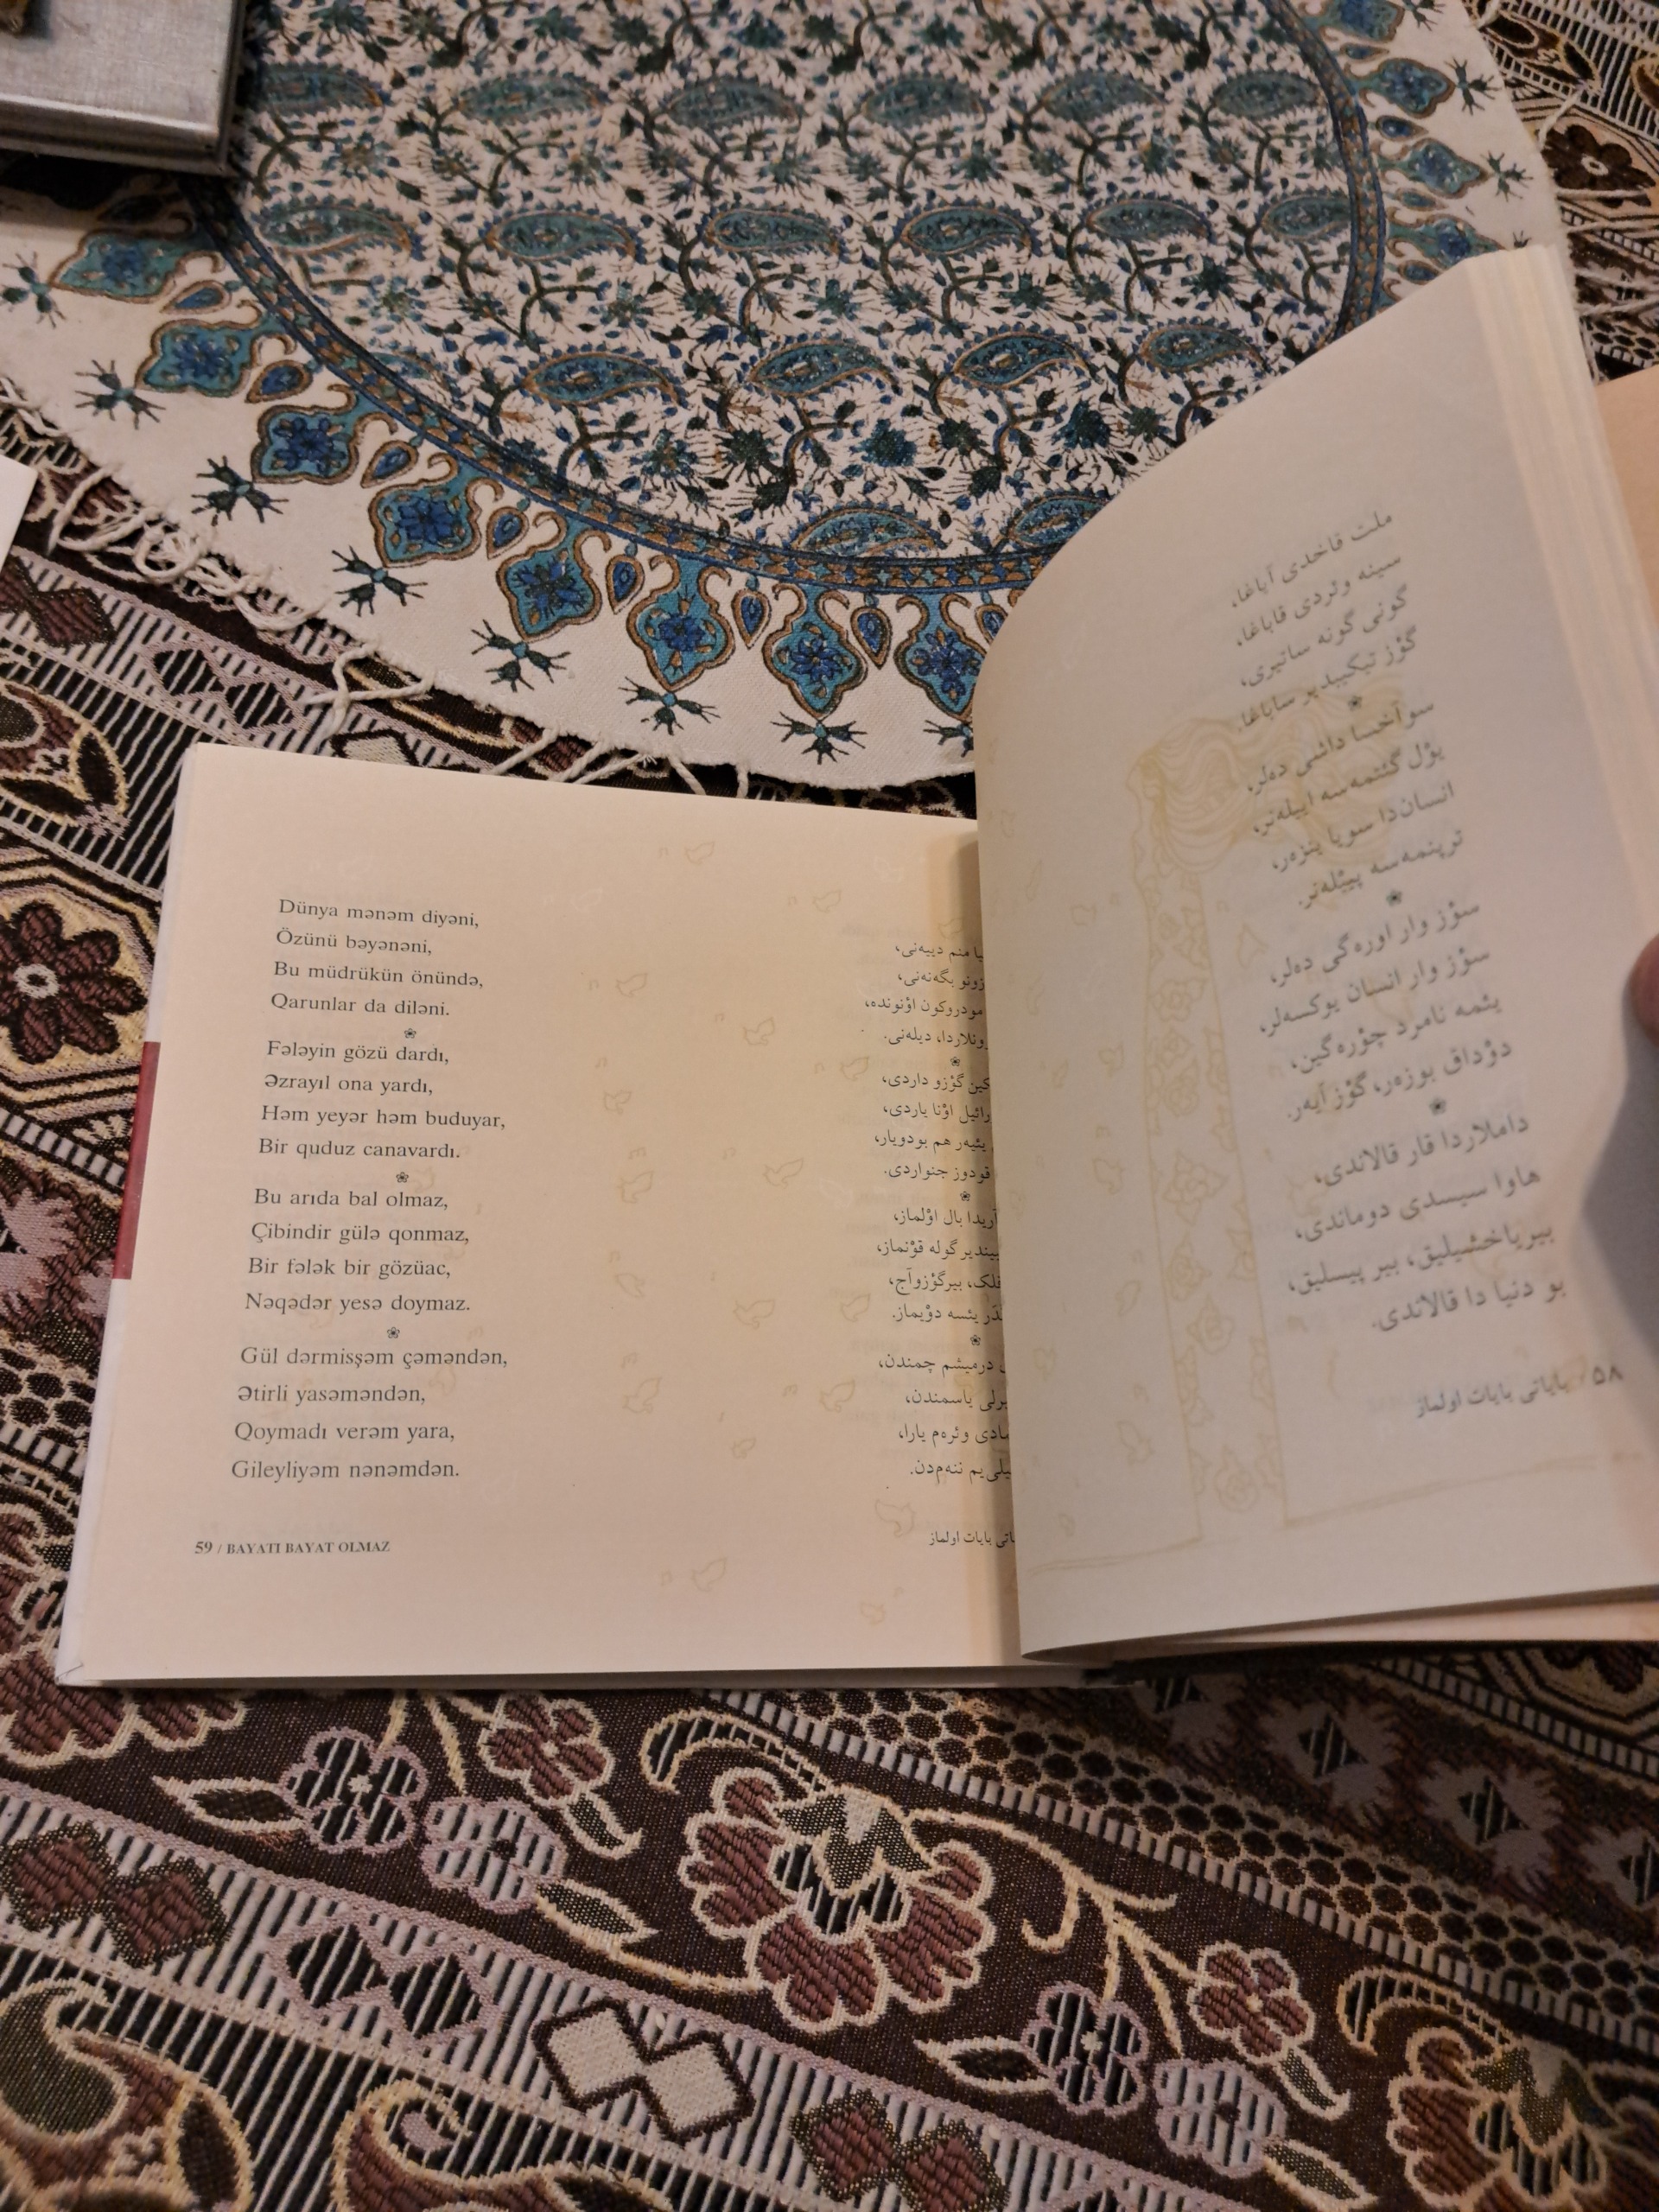 Dünya mənəm diyəni,
Özünü bəyənəni,
Bu müdrükün önündə,
Qarunlar da diləni.
Fələyin gözü dardı,
Əzrayıl ona yardı,
Həm yeyər həm buduyar,
Bir quduz canavardı.
Bu arıda bal olmaz,
Çibindir gülə qonmaz,
Bir fələk bir gözüac,
Nəqədər yesə doymaz.
Gül dərmisşəm çəməndən,
Ətirli yasəməndən,
Qoymadı verəm yara,
Gileyliyəm nənəmdən.
59 / BAYATI BAYAT OLMAZ
منم دییه‌نی،
بگه‌نه‌نی،
مودروکون اؤنونده،
دیله‌نی.
گؤزو داردی،
اوْنا یاردی،
یئیه‌ر هم بودویار،
قودوز جنواردی.
بال اوْلماز،
گوله قوْنماز،
بیرگؤزوآج،
یئسه دوْیماز.
درمیشم چمندن،
یاسمندن،
وئره‌م یارا،
ننه‌م‌دن.
بایات اولماز
ملت قاخدی آیاغا،
سینه وئردی قاباغا،
گونی گونه ساتیری،
گؤز تیکیبدیر ساباغا.
سو آخسا داشی ده‌لر،
یوْل گئتمه‌سه اییله‌نر،
انسان‌دا سویا بنزه‌ر،
ترپنمه‌سه پیئله‌نر.
سؤز وار اوره‌گی ده‌لر،
سؤز وار انسان یوکسه‌لر،
یئمه نامرد چؤره‌گین،
دوْداق بوزه‌ر، گؤز آیه‌ر.
داملاردا قار قالاندی،
هاوا سیسدی دوماندی،
بیریاخشیلیق، بیر پیسلیق،
بو دنیا دا قالاندی.
۵۸ / بایاتی بایات اولماز